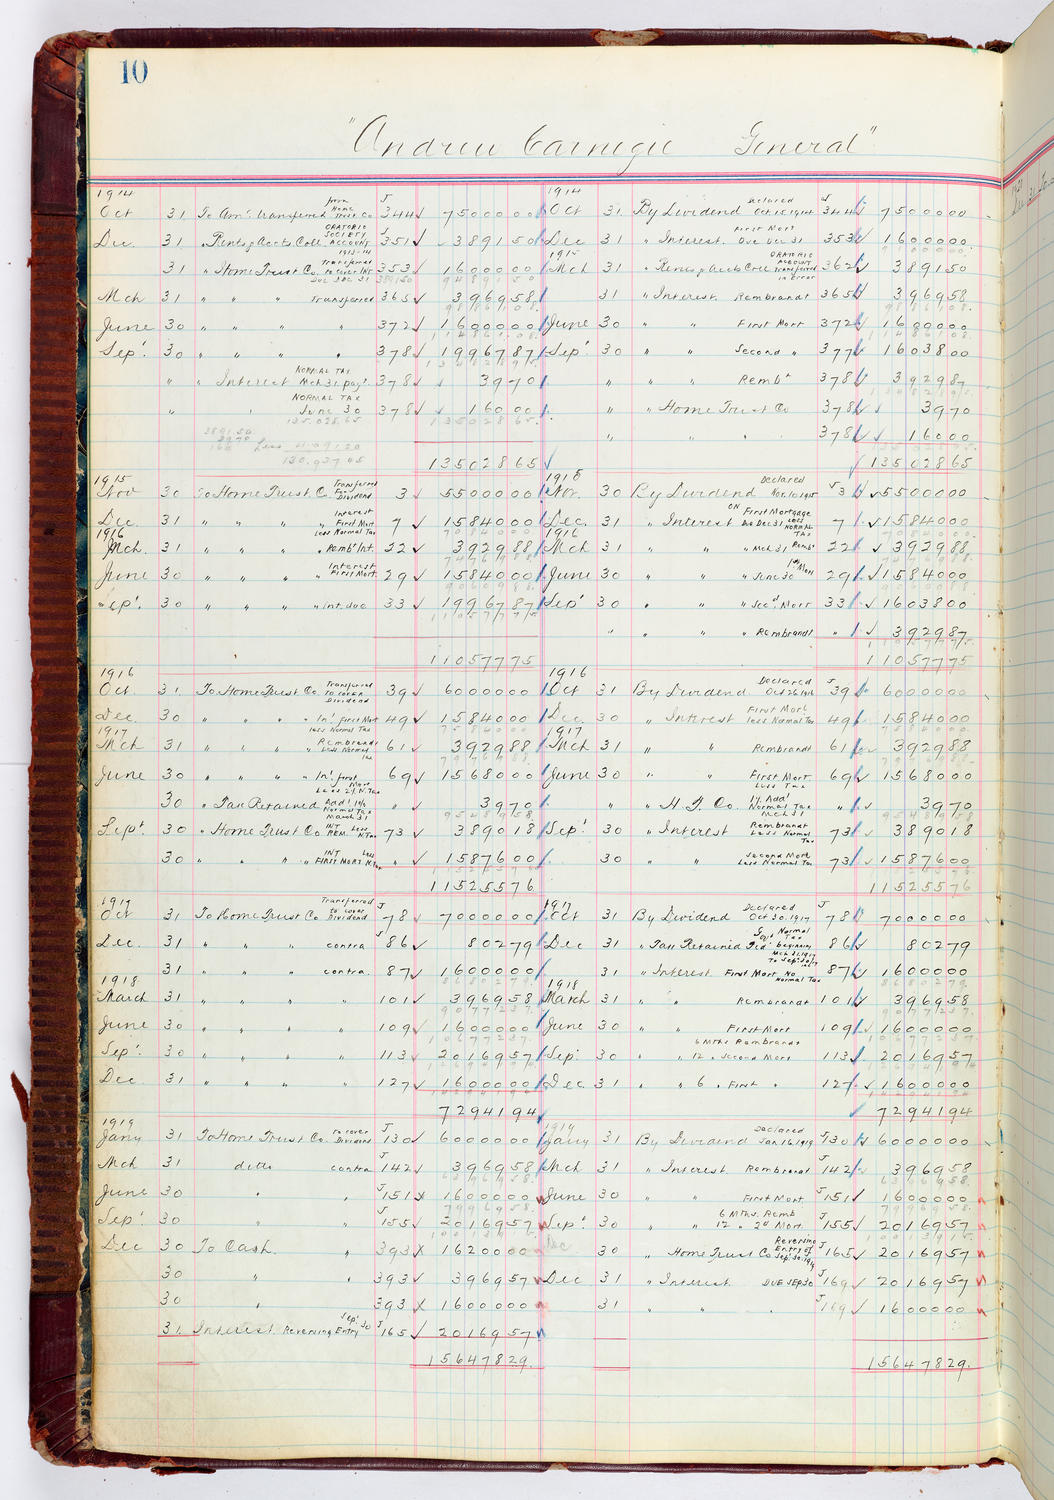 10
"Andrew Carnegie General"
1914 1914
Oct 31 To Am't transferred from Home Trust Co J 344 ✓ 7500000 Oct 31 By Dividend Declared Oct 15, 1914 J 344 7500000
Dec 31 " Rents & Accts Coll. ORATORIO SOCIETY ACCOUNT 1913-14 J 351 ✓ 389150 Dec 31 " Interest First Mort Due Dec 31 353 1600000
1915
31 " Home Trust Co. Transferred to cover INT Due Dec 31 353 ✓ 1600000 Mch 31 " Rents & Accts Coll ORATORIO ACCOUNT Transferred in Error 362 389150
Mch 31 " " " Transferred 365 ✓ 396958 31 " Interest Rembrandt 365 396958
June 30 " " " " 372 ✓ 1600000 June 30 " " First Mort 372 1600000
Sep't 30 " " " " 378 ✓ 1996787 Sep't 30 " " Second " 377 1603800
" " Interest NORMAL TAX Mch 31 pay't 378 ✓ 3970 " " " Remb't 378 392987
" " NORMAL TAX June 30 378 ✓ 16000 " " Home Trust Co 378 3970
135.028.65
3891.50
39.70
160 Less 4091.20
130.937.45
" " " 378 ✓ 16000
13502865 ✓ ✓ 13502865
1915 1915
Nov 30 To Home Trust Co Transferred For Dividend 3 ✓ 5500000 Nov. 30 By Dividend Declared Nov. 10, 1915 3 ✓ 5500000
Dec. 31 " " " " Interest First Mort Less Normal Tax 7 ✓ 1584000 Dec. 31 " Interest ON First Mortgage Due Dec 31 LESS NORMAL TAX 7 ✓ 1584000
1916 1916
Mch. 31 " " " " Remb't Int. 22 ✓ 392988 Mch 31 " " " Mch 31 Remb't 22 ✓ 392988
June 30 " " " " Interest First Mort. 29 ✓ 1584000 June 30 " " " June 30 1st Mort 29 ✓ 1584000
Sep't. 30 " " " " Int. due 33 ✓ 1996787 Sep't 30 " " " Sec'd. Mort 33 ✓ 1603800
" " " " Rembrandt " ✓ 392987
11057775 11057775
1916 1916
Oct 31 To Home Trust Co. Transferred to cover Dividend 39 ✓ 6000000 Oct 31 By Dividend Declared Oct 26, 1916 J 39 6000000
Dec. 30 " " " " Int First Mort less Normal Tax 49 ✓ 1584000 Dec. 30 " Interest First Mort less Normal Tax 49 1584000
1917 1917
Mch 31 " " " " Rembrandt Less Normal Tax 61 ✓ 392988 Mch 31 " " Rembrandt 61 392988
June 30 " " " " Int. first Mort Less 2% N. Tax 69 ✓ 1568000 June 30 " " First Mort. Less Tax 69 1568000
30 " Tax Retained Add'l 1% Normal Tax March 31 " ✓ 3970 " " H. T. Co. 1% Add'l Normal Tax Mch 31 " ✓ 3970
Sept 30 " Home Trust Co INT REM. Less N. Tax 73 ✓ 389018 Sep't 30 " Interest Rembrandt Less Normal Tax 73 389018
30 " " " " INT Less FIRST MORT N. Tax " ✓ 1587600 30 " " Second Mort Less Normal Tax 73 ✓ 1587600
11525576 11525576
1917 1917
Oct 31 To Home Trust Co Transferred to cover Dividend J 78 ✓ 7000000 Oct 31 By Dividend Declared Oct 30, 1917 J 78 7000000
Dec. 31 " " " contra J 86 ✓ 80279 Dec 31 " Tax Retained 86 80279
31 " " " contra 87 ✓ 1600000 31 " Interest First Mort. No Normal Tax 87 1600000
1918 1918
March 31 " " " " 101 ✓ 396958 March 31 " " Rembrandt 101 396958
June 30 " " " " 109 ✓ 1600000 June 30 " " First Mort 109 1600000
Sep't 30 " " " " 113 ✓ 2016957 Sep't 30 " " 6 Mths Rembrandt 12 " Second Mort 113 2016957
Dec. 31 " " " " 127 ✓ 1600000 Dec 31 " " 6 " First " 127 ✓ 1600000
7294194 ✓ 7294194
1919 1919
Jany 31 To Home Trust Co. to cover Dividend J 130 ✓ 6000000 Jany 31 By Dividend Declared Jan 16, 1919 J 130 6000000
Mch 31 ditto contra J 142 ✓ 396958 Mch 31 " Interest Rembrandt J 142 396958
June 30 " " J 151 x 1600000 June 30 " " First Mort. J 151 1600000
Sep't 30 " " J 155 ✓ 2016957 Sep't. 30 " " 6 Mths. Remb 12 " 2d Mort. J 155 2016957
Dec 30 To Cash " 393 x 1620000 Dec 30 " Home Trust Co Reversing Entry of Sep. 30, 1919 J 165 2016957
30 " " 393 ✓ 396957 Dec 31 " Interest DUE SEP 30 J 169 2016957
30 " 393 x 1600000 31 " " " J 169 1600000
31 Interest Reversing Entry Sep't 30 J 165 ✓ 2016957
15647829. 15647829.